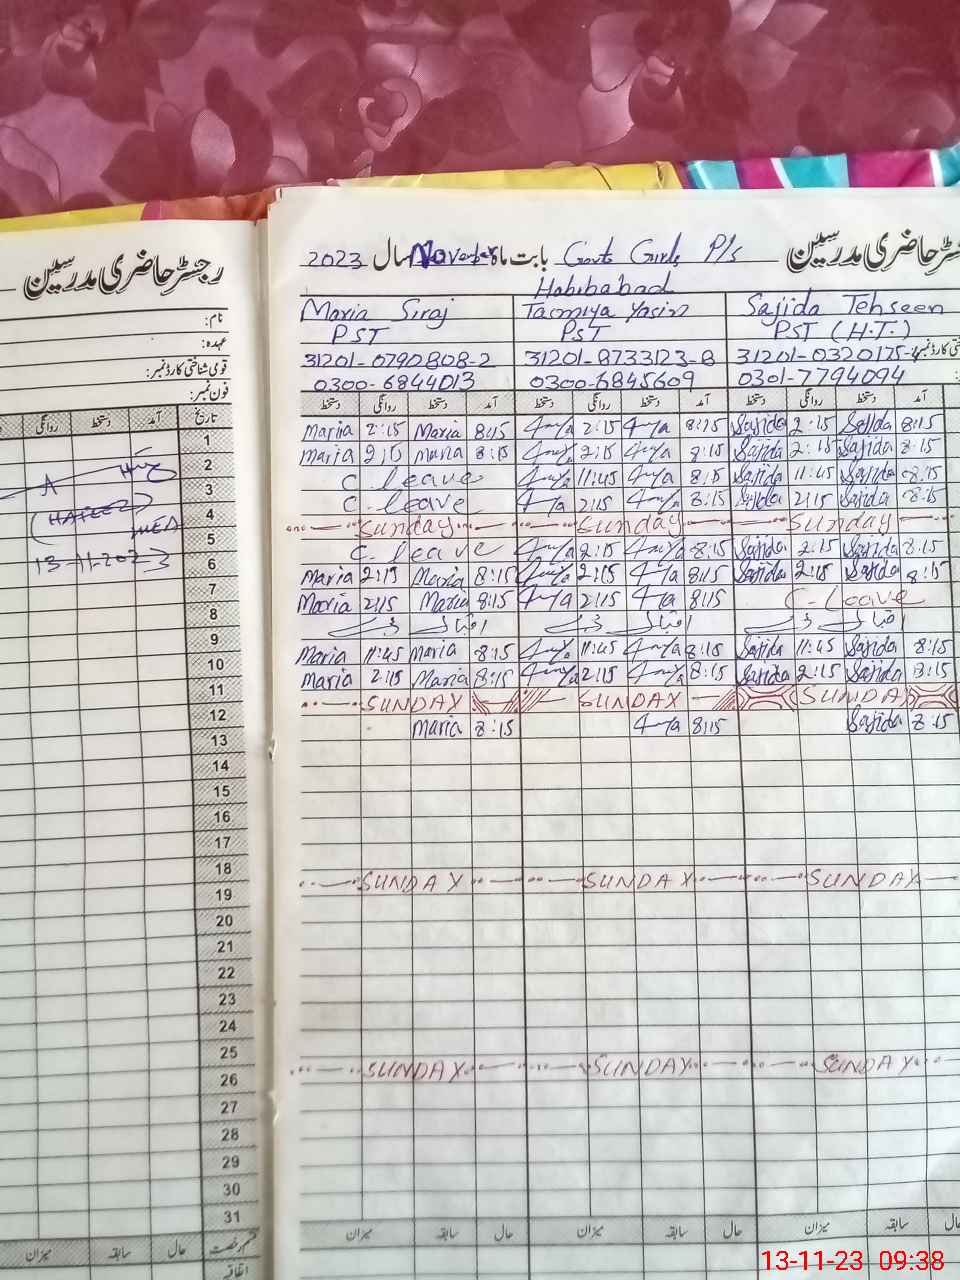 رجسٹر حاضری مدرسین
نام:
عہدہ:
قومی شناختی کارڈ نمبر:
فون نمبر:
تاریخ آمد دستخط روانگی
1
2
3
4
5
6
7
8
9
10
11
12
13
14
15
16
17
18
19
20
21
22
23
24
25
26
27
28
29
30
31
A
(HAFEEZ)
MEA
13-11-2023
قسم رخصت حال سابقہ میزان
اتفاقیہ
رجسٹر حاضری مدرسین Govt Girls P/s بابت ماہ November سال 2023
Habibabad
Maria Siraj Tasmiya Yasin Sajida Tehseen
PST PST PST (H.T.)
31201-0790808-2 31201-8733123-8 31201-0320175-4
0300-6844013 0300-6845609 0301-7794094
دستخط روانگی دستخط آمد دستخط روانگی دستخط آمد دستخط روانگی دستخط آمد
Maria 2:15 Maria 8:15 2:15 8:15 Sajida 2:15 Sajida 8:15
Maria 2:15 Maria 8:15 2:15 8:15 Sajida 2:15 Sajida 8:15
C. leave 11:45 8:15 Sajida 11:45 Sajida 8:15
C. leave 2:15 8:15 Sajida 2:15 Sajida 8:15
Sunday Sunday Sunday
C. leave 2:15 8:15 Sajida 2:15 Sajida 8:15
Maria 2:15 Maria 8:15 2:15 8:15 Sajida 2:15 Sajida 8:15
Maria 2:15 Maria 8:15 2:15 8:15 C-Leave
اقبال ڈے اقبال ڈے اقبال ڈے
Maria 11:45 Maria 8:15 11:45 8:15 Sajida 11:45 Sajida 8:15
Maria 2:15 Maria 8:15 2:15 8:15 Sajida 2:15 Sajida 8:15
SUNDAY SUNDAY SUNDAY
Maria 8:15 8:15 Sajida 8:15
SUNDAY SUNDAY SUNDAY
SUNDAY SUNDAY SUNDAY
میزان سابقہ حال میزان سابقہ حال میزان سابقہ حال
13-11-23 09:38